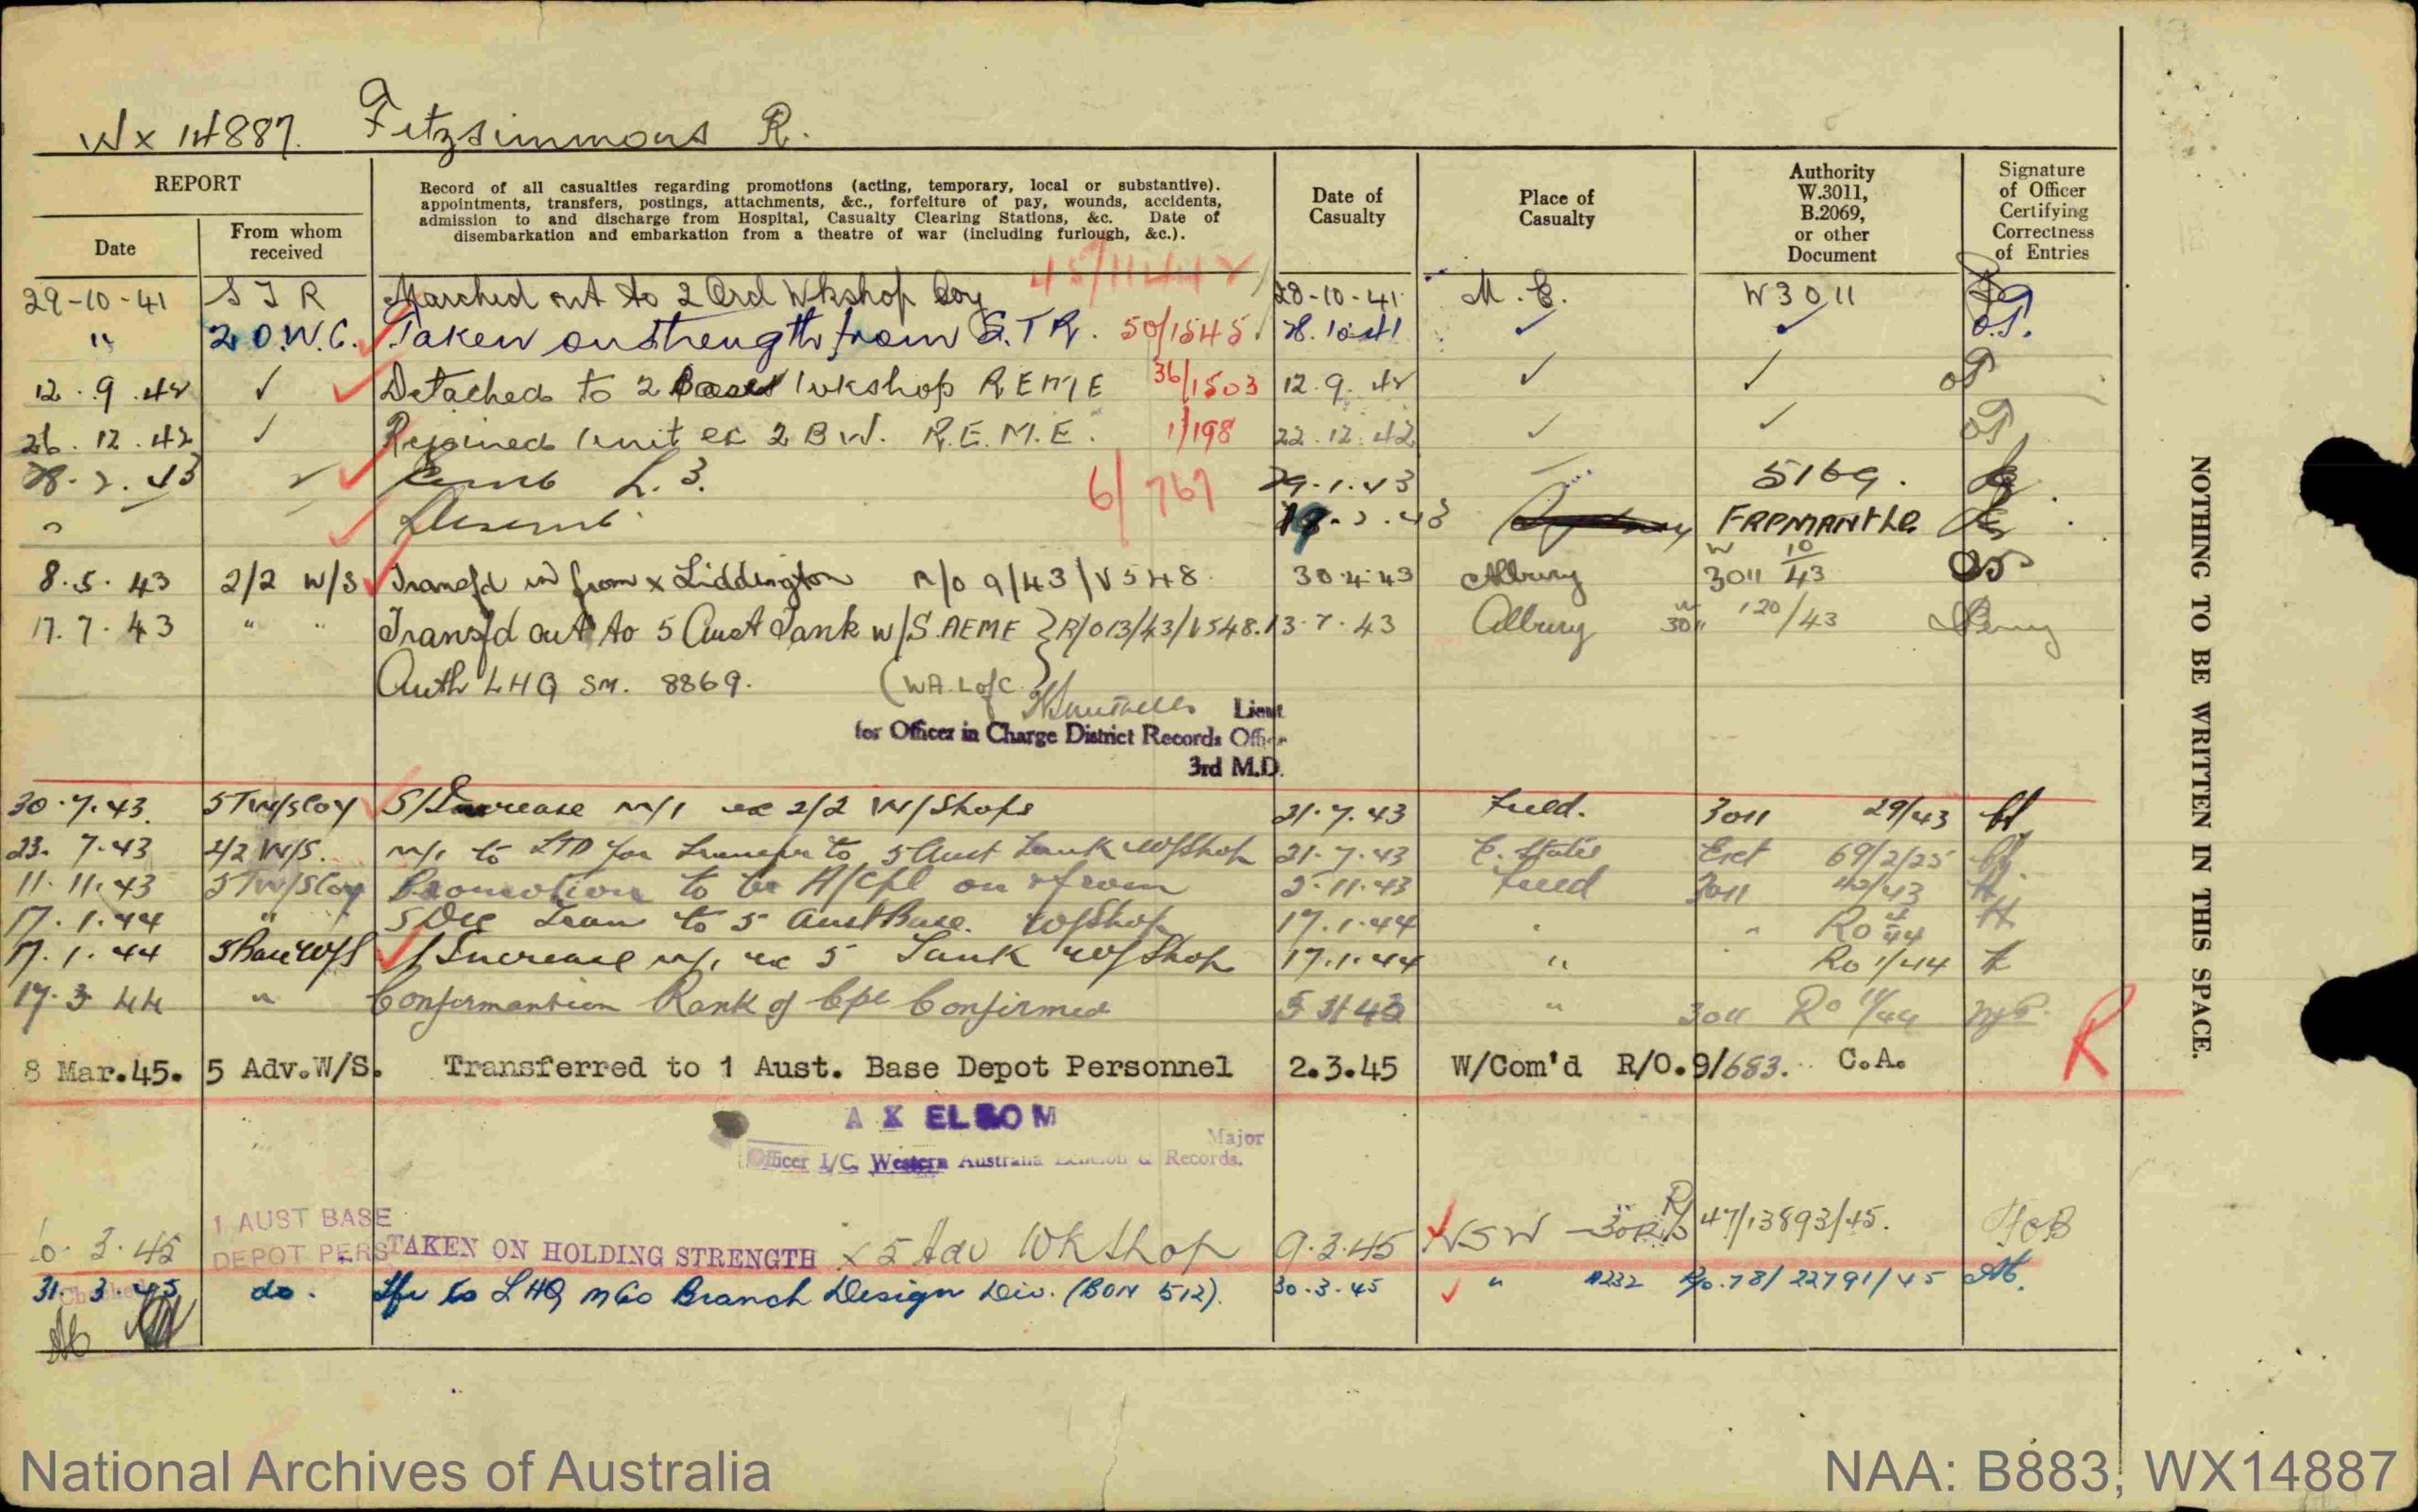 Wx 14887. Fitzsimmons R.
REPORT
Date
From whom received
Record of all casualties regarding promotions (acting, temporary, local or substantive).
appointments, transfers, postings, attachments, &c., forfeiture of pay, wounds, accidents,
admission to and discharge from Hospital, Casualty Clearing Stations, &c. Date of
disembarkation and embarkation from a theatre of war (including furlough, &c.).
Date of Casualty
Place of Casualty
Authority W.3011, B.2069, or other Document
Signature of Officer Certifying Correctness of Entries
29-10-41 STR Marched out to 2 Ord Wkshop Coy 28-10-41 M.E. W3011
" 2 O.W.C. Taken on strength from S.T.R. 50/1545 28.10.41
12.9.42 ✓ Detached to 2 Base Wkshop REME 36/1503 12.9.42 ✓ ✓
26.12.42 ✓ Rejoined Unit ex 2 B W. R.E.M.E. 1/198 22.12.42 ✓ ✓
Emb L.3. 6/767 29.1.43 5169.
Disemb. FREMANTLE
8.5.43 2/2 W/S Transf'd in from x Liddington R/O 9/43/V548 30.4.43 Albury W 3011 10/43
17.7.43 " " Transf'd out to 5 Aust Tank W/S AEME } R/O13/43/V548. 13.7.43 Albury W 3011 120/43
Auth LHQ SM. 8869. (WA. L of C.
Lieut
for Officer in Charge District Records Office
3rd M.D.
30.7.43. 5 TW/S Coy S/Increase M/I ex 2/2 W/Shops 21.7.43 Field. 3011 29/43
23.7.43 2/2 W/S. M/I to LTD for transfer to 5 Aust Tank W/Shop 21.7.43 E. States 69/2/25
11.11.43 5 TW/S Coy Promotion to be A/Cpl on & from 5.11.43 Field 3011 42/43
17.1.44 " " S Dec Tran to 5 Aust Base. W/Shop 17.1.44 " RO 4/44
17.1.44 5 Base W/S S/Increase M/I ex 5 Tank W/Shop 17.1.44 " RO 1/44
17.3.44 " Confirmantion Rank of Cpl Confirmed " 3011 RO 11/44
8 Mar.45. 5 Adv.W/S. Transferred to 1 Aust. Base Depot Personnel 2.3.45 W/Com'd R/O.9/683. C.A.
R
A K ELSOM
Major
Officer I/C. Western Australia Echelon & Records.
3.45 1 AUST BASE DEPOT PERS TAKEN ON HOLDING STRENGTH x 5 Adv Wkshop 9.3.45 NSW 47/13893/45.
31.3.45 do. Tfr to LHQ MGO Branch Design Div. (BON 512). 30.3.45 " A232 R/o.78/22791/45
NOTHING TO BE WRITTEN IN THIS SPACE.
National Archives of Australia
NAA: B883, WX14887